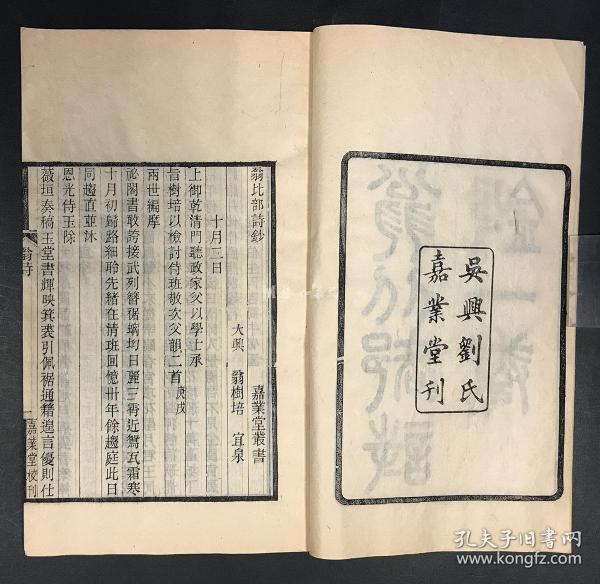 吳興劉氏
嘉業堂刊
翁比部詩鈔 嘉業堂叢書
大興 翁樹培 宜泉
十月三日
上御乾清門聽政家父以學士承
旨樹培以檢討侍班敬次父韻二首庚戌
兩世編摩
祕閣書敢誇接武列簪裾螭坳日麗三霄近鴛瓦霜寒
十月初歸路細聆先緒在清班回憶卅年餘趨庭此日
同趨直並沐
恩光侍玉除
薇垣奏稿玉堂書輝映箕裘引佩裾通籍遑言優則仕
翁詩 一 嘉業堂校刊
孔夫子旧书网
kongfz.com